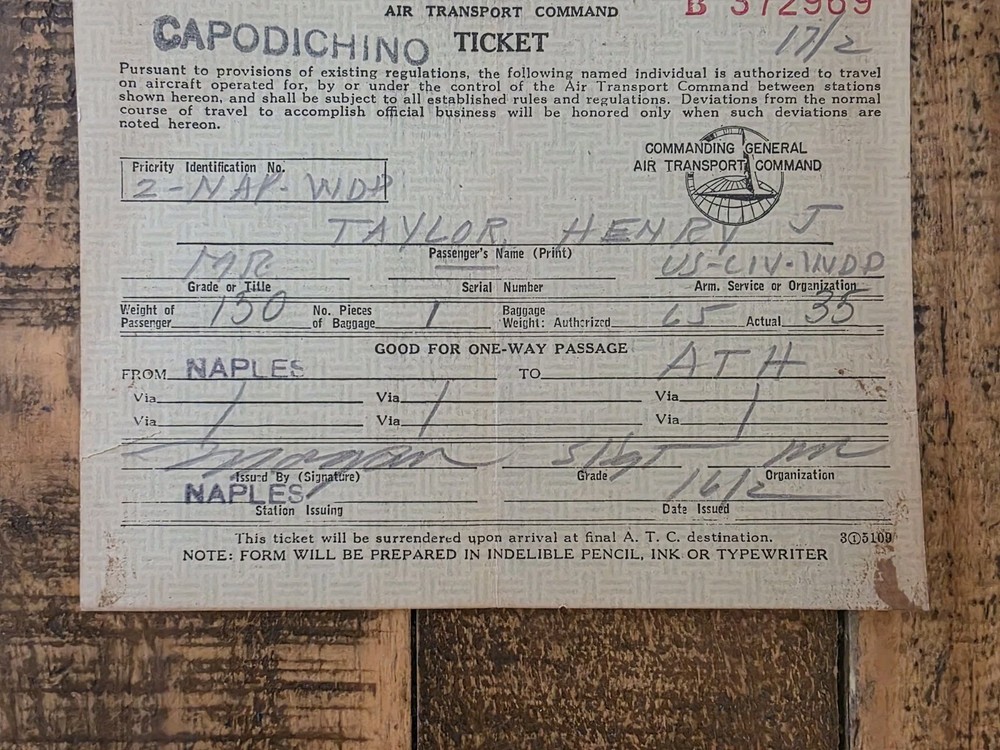 AIR TRANSPORT COMMAND B 372969
CAPODICHINO TICKET 17/2
Pursuant to provisions of existing regulations, the following named individual is authorized to travel
on aircraft operated for, by or under the control of the Air Transport Command between stations
shown hereon, and shall be subject to all established rules and regulations. Deviations from the normal
course of travel to accomplish official business will be honored only when such deviations are
noted hereon.
COMMANDING GENERAL
AIR TRANSPORT COMMAND
Priority Identification No.
2-NAP-WDP
TAYLOR HENRY J
Passenger's Name (Print)
MR US-CIV-WDP
Grade or Title Serial Number Arm. Service or Organization
Weight of Passenger 130 No. Pieces of Baggage 1 Baggage Weight: Authorized 65 Actual 35
GOOD FOR ONE-WAY PASSAGE
FROM NAPLES TO ATH
Via / Via / Via /
Via Via Via
S/Sgt
Issued By (Signature) Grade Organization
NAPLES 16/2
Station Issuing Date Issued
This ticket will be surrendered upon arrival at final A. T. C. destination. 3①5109
NOTE: FORM WILL BE PREPARED IN INDELIBLE PENCIL, INK OR TYPEWRITER